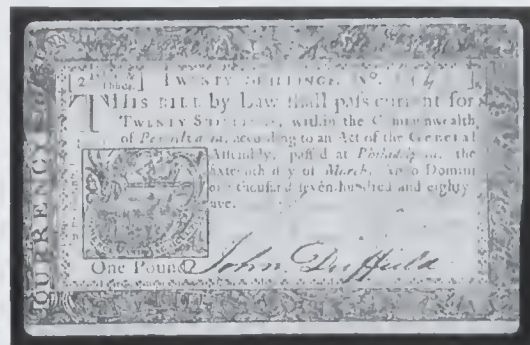 TWENTY SHILLINGS. No.
THIS BILL by Law ſhall paſs current for
TWENTY SHILLINGS, within the Commonwealth
of Pennſylvania, according to an Act of the General
Aſſembly, paſſ'd at Philadelphia, the
ſixteenth day of March, Anno Domini
one thouſand ſeven hundred and eighty
five.
One Pound
John Duffield
CURRENCY